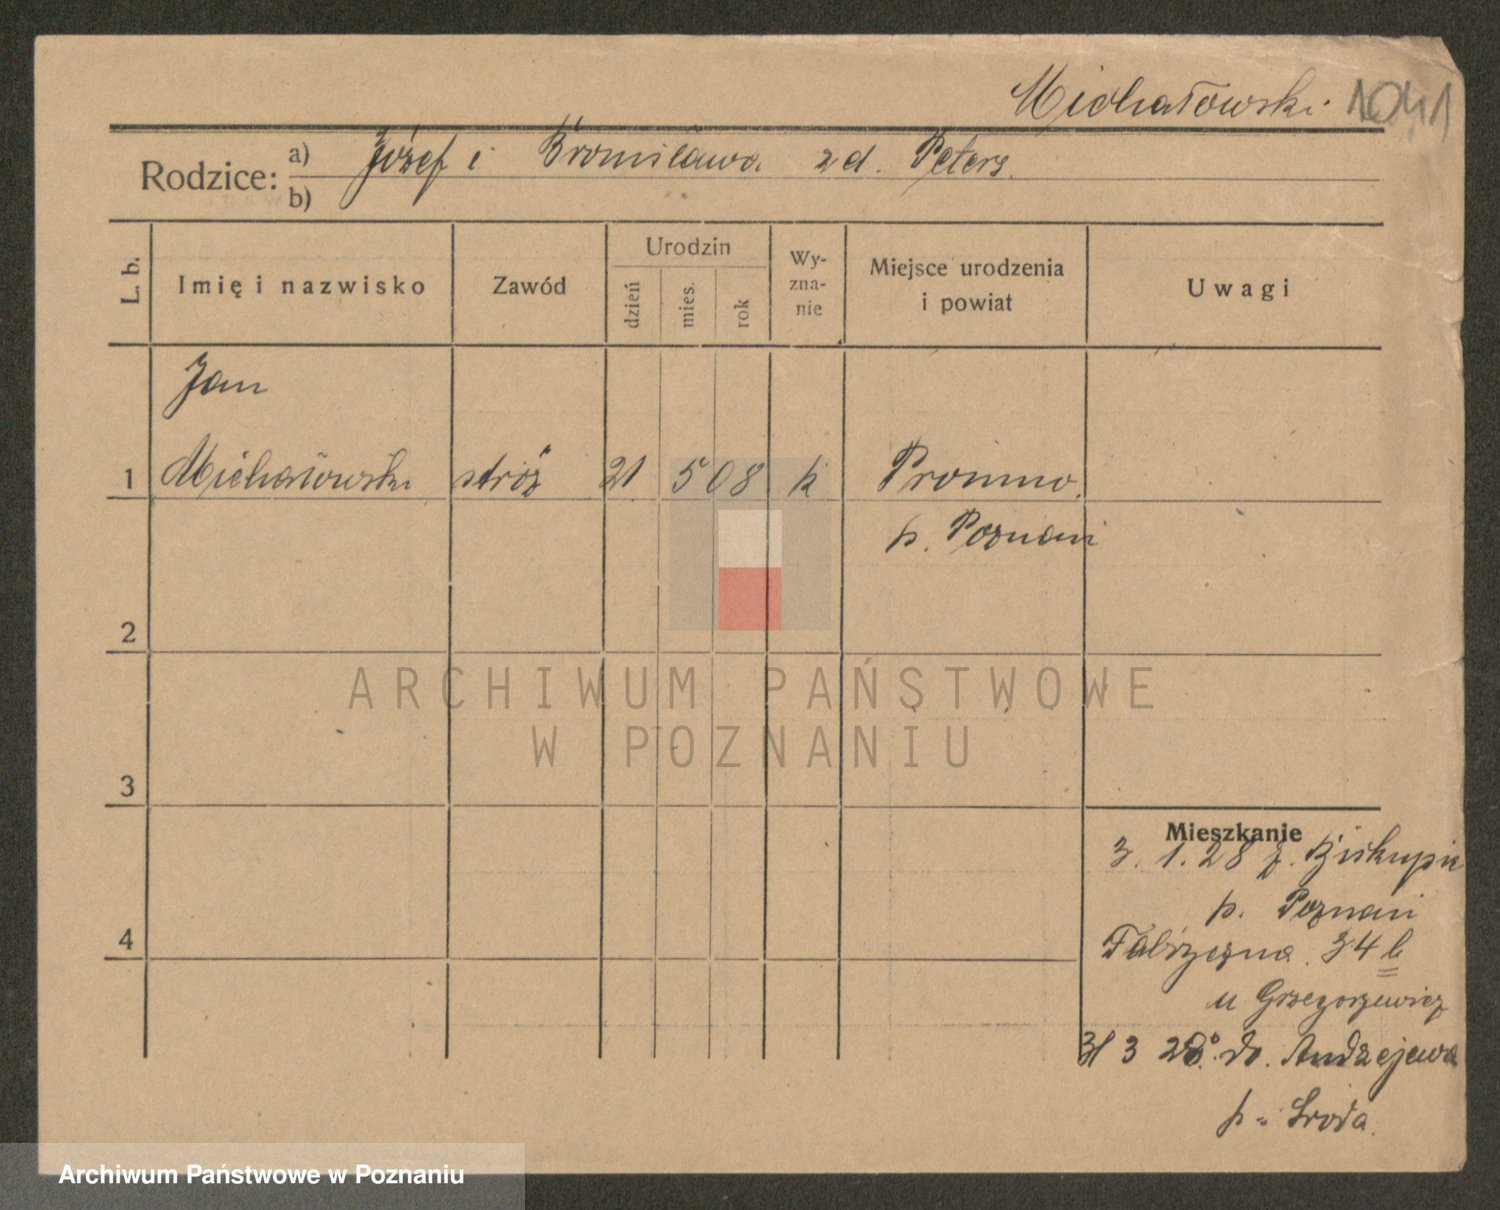 Michałowski 1041
Rodzice: a) Józef i Bronisława zd. Peters.
b)
L. b.
Imię i nazwisko
Zawód
Urodzin
dzień
mies.
rok
Wy-
zna-
nie
Miejsce urodzenia
i powiat
Uwagi
Jan
1 Michałowski stróż 21 5 08 k Promno.
p. Poznań
2
3
4
ARCHIWUM PAŃSTWOWE
W POZNANIU
Mieszkanie
3. 1. 28 z. Biskupic
p. Poznań
Fabryczna 34 b
u Grzegorzewicz
31 3 28. do. Andrzejewa
p. Środa.
Archiwum Państwowe w Poznaniu